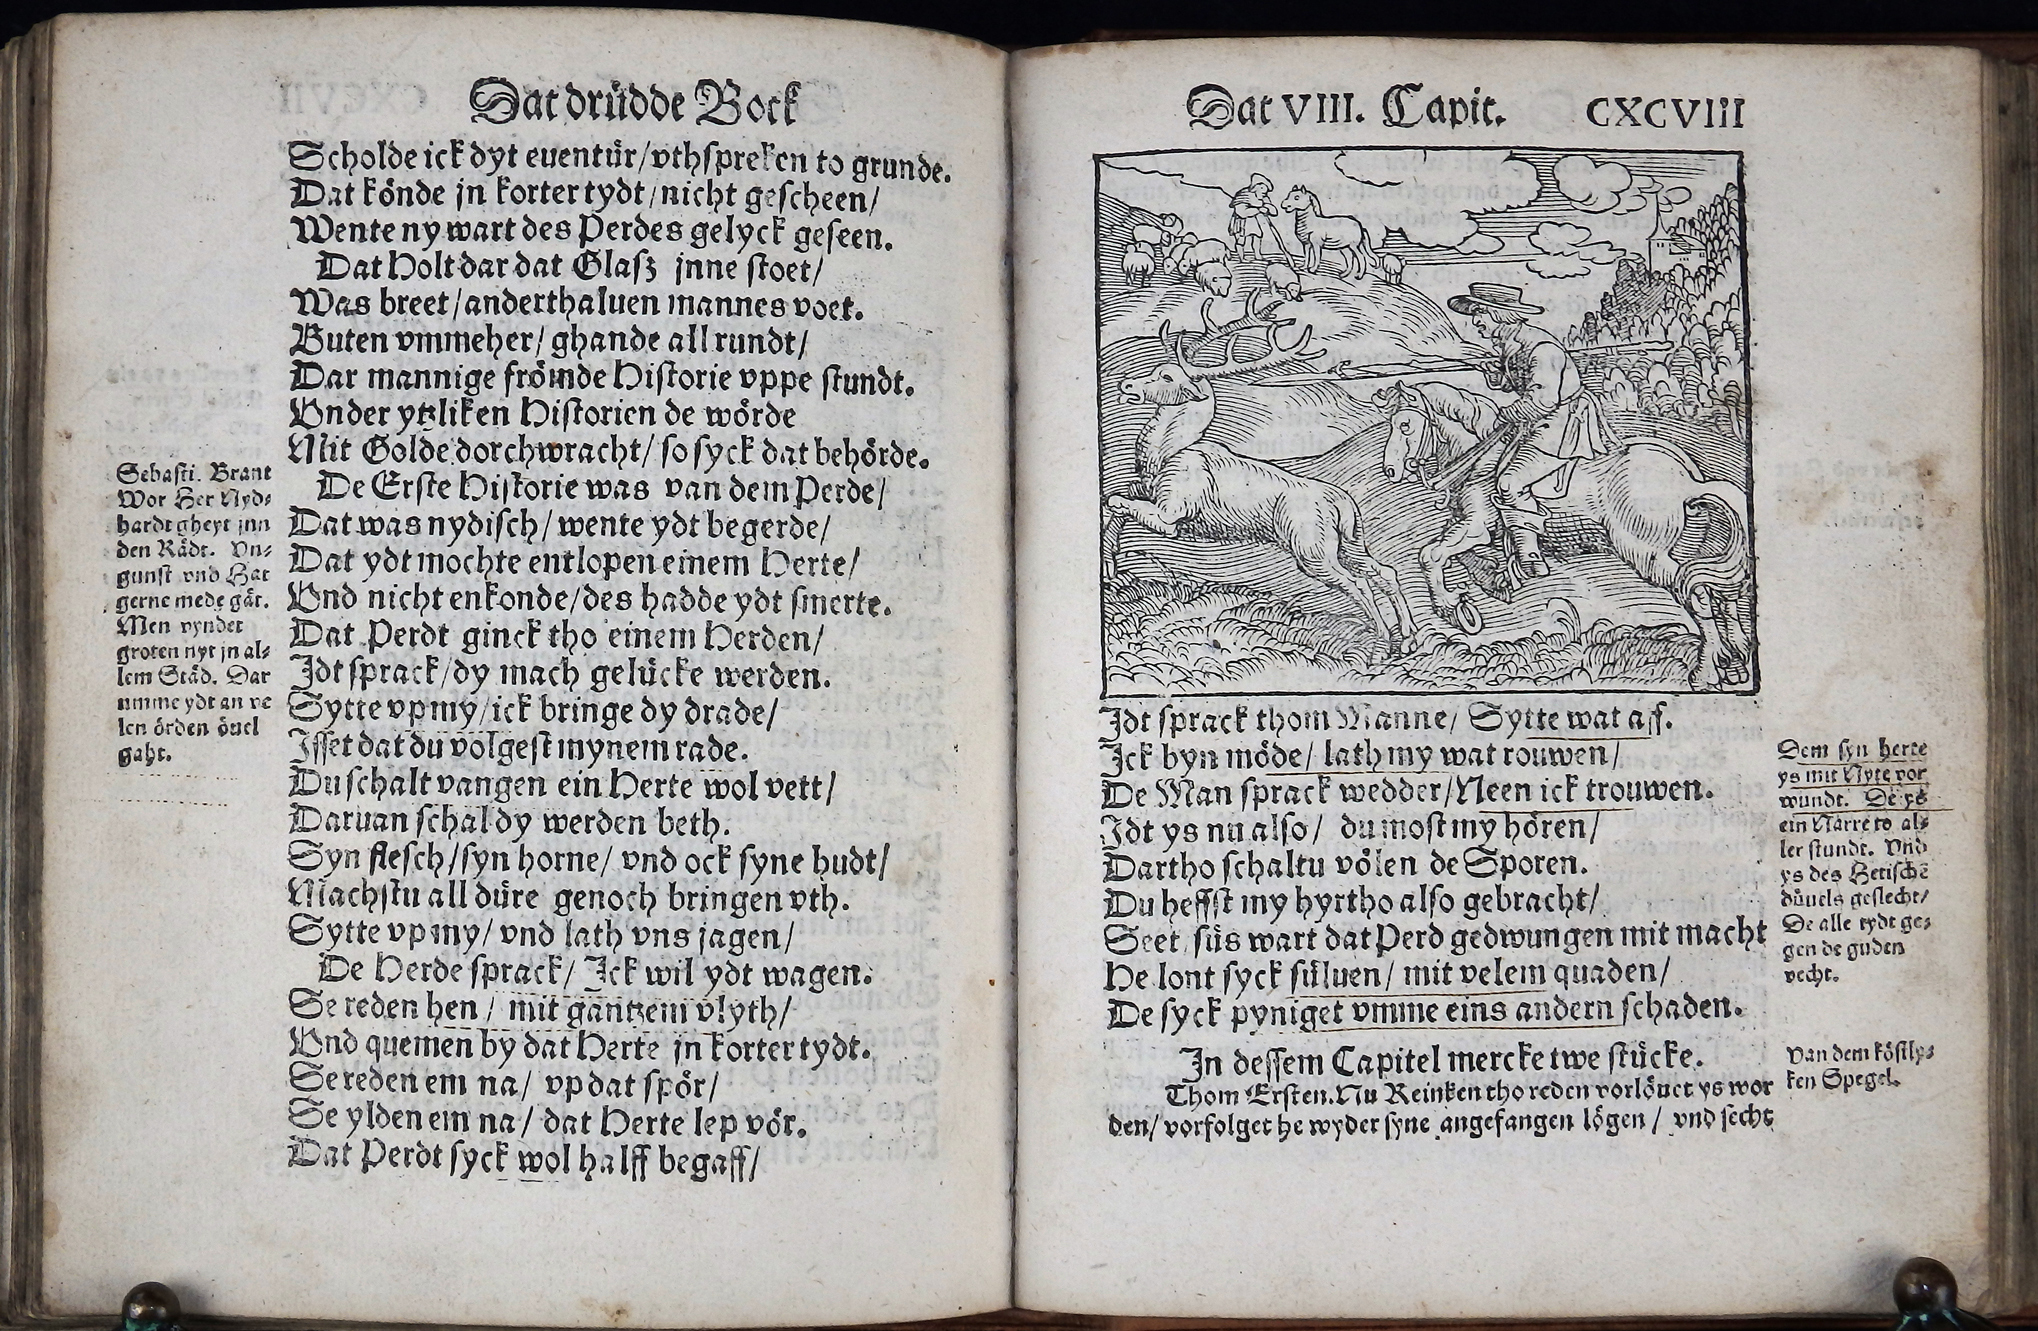 Dat drüdde Bock
Scholde ick dyt euentür/vthspreken to grunde.
Dat könde jn korter tydt/nicht gescheen/
Wente ny wart des Perdes gelyck geseen.
Dat Holt dar dat Glasz jnne stoet/
Was breet/anderthaluen mannes voet.
Buten vmmeher/ghande all rundt/
Dar mannige frömde Historie vppe stundt.
Vnder ytzliken Historien de wörde
Mit Golde dorchwracht/so syck dat behörde.
De Erste Historie was van dem Perde/
Dat was nydisch/wente ydt begerde/
Dat ydt mochte entlopen einem Herte/
Vnd nicht enkonde/des hadde ydt smerte.
Dat Perdt ginck tho einem Herden/
Jdt sprack/dy mach gelücke werden.
Sytte vp my/ick bringe dy drade/
Jsset dat du volgest mynem rade.
Du schalt vangen ein Herte wol vett/
Daruan schal dy werden beth.
Syn flesch/syn horne/vnd ock syne hudt/
Machstu all düre genoch bringen vth.
Sytte vp my/vnd lath vns jagen/
De Herde sprack/Jck wil ydt wagen.
Se reden hen/mit gantzem vlyth/
Vnd quemen by dat Herte jn korter tydt.
Se reden em na/vp dat spör/
Se ylden em na/dat Herte lep vör.
Dat Perdt syck wol halff begaff/
Sebasti. Brant
Wor Her Nyd-
hardt gheyt jnn
den Rädt. Vn-
gunst vnd Hat
gerne mede gät.
Men vyndet
groten nyt jn al-
lem Städ. Dar
vmme ydt an ve
len örden övel
gaht.
Dat VIII. Capit. CXCVIII
Jdt sprack thom Manne/Sytte wat aff.
Jck byn möde/lath my wat rouwen/
De Man sprack wedder/Neen ick trouwen.
Jdt ys nu also/du most my hören/
Dartho schaltu völen de Sporen.
Du heffst my hyrtho also gebracht/
Seet süs wart dat Perd gedwungen mit macht
He lont syck süluen/mit velem quaden/
De syck pyniget vmme eins andern schaden.
Jn dessem Capitel mercke twe stücke.
Thom Ersten. Nu Reinken tho reden vorlövet ys wor
den/vorfolget he wyder syne angefangen lögen/vnd secht
Dem syn herte
ys mit Nyte vor
wundt. De ys
ein Narre to al-
ler stundt. Vnd
ys des Hetischē
düuels geslecht/
De alle tydt ge-
gen de guden
vecht.
Van dem köstly-
ken Spegel.